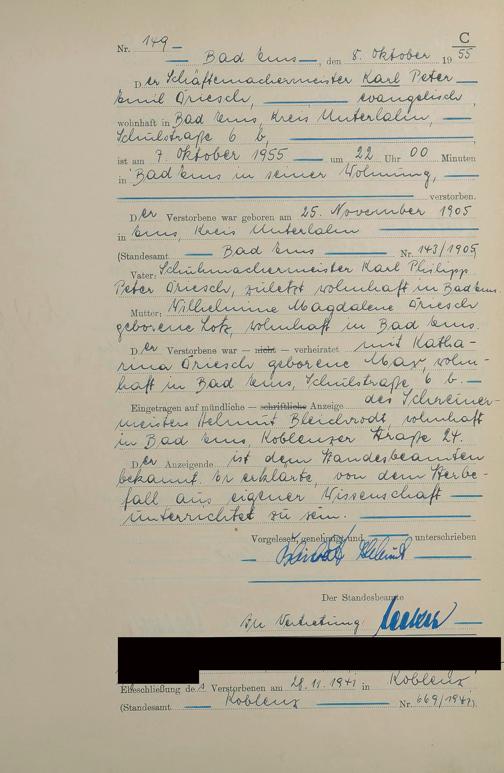 C
Nr. 149
Bad Ems, den 8. Oktober 1955
Der Schäftemachermeister Karl Peter
Emil Driesch, evangelisch,
wohnhaft in Bad Ems, Kreis Unterlahn,
Schulstraße 6 b,
ist am 7. Oktober 1955 um 22 Uhr 00 Minuten
in Bad Ems in seiner Wohnung,
verstorben.
Der Verstorbene war geboren am 25. November 1905
in Ems, Kreis Unterlahn
(Standesamt Bad Ems Nr. 143/1905)
Vater: Schuhmachermeister Karl Philipp
Peter Driesch, zuletzt wohnhaft in Bad Ems.
Mutter: Wilhelmine Magdalene Driesch
geborene Lotz, wohnhaft in Bad Ems.
Der Verstorbene war — nicht — verheiratet mit Katha-
rina Driesch geborene May, wohn-
haft in Bad Ems, Schulstraße 6 b.
Eingetragen auf mündliche — schriftliche — Anzeige des Schreiner-
meisters Helmut Bleichrodt, wohnhaft
in Bad Ems, Koblenzer Straße 24.
Der Anzeigende ist dem Standesbeamten
bekannt. Er erklärte, von dem Sterbe-
fall aus eigener Wissenschaft
unterrichtet zu sein.
Vorgelesen, genehmigt und unterschrieben
Helmut
Der Standesbeamte
In Vertretung
Eheschließung des Verstorbenen am 28.11.1941 in Koblenz
(Standesamt Koblenz Nr. 669/1941).